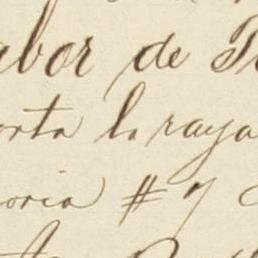 abor de
orta la raya
oria # 7